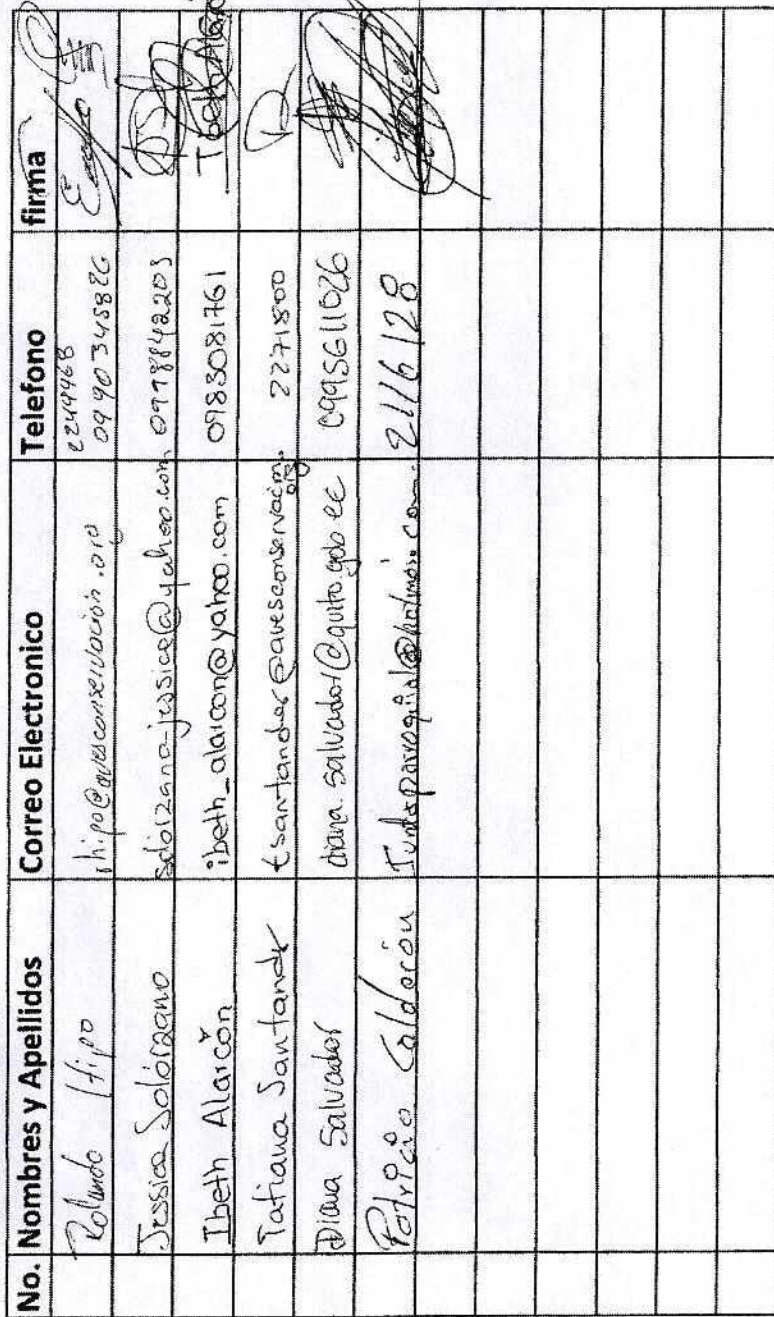 No. Nombres y Apellidos Correo Electronico Telefono firma
Rolando Hipo rhipo@avesconservacion.org 2249968
0990345826
Jessica Solórzano solorzano-jessica@yahoo.com 0998842203
Ibeth Alarcón ibeth_alarcon@yahoo.com 0983081761 Ibeth Alarcón
Tatiana Santander tsantander@avesconservacion.org 2271800
Diana Salvador diana.salvador@quito.gob.ec 0995611026
Patricio Calderón 2116128